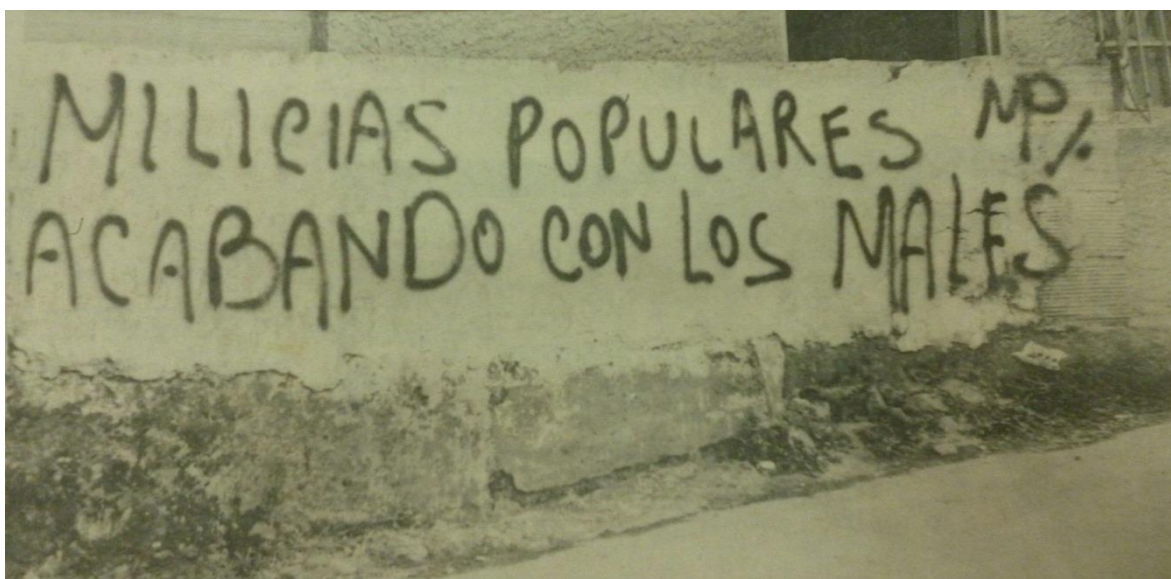 MILICIAS POPULARES MP/.
ACABANDO CON LOS MALES